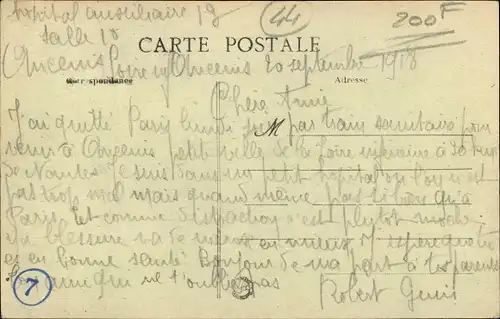 hôpital auxiliaire 19
salle 18
44
200F
CARTE POSTALE
Correspondance
Adresse
Ancenis Loire inf Ancenis 20 septembre 1918
Chère Amie
M
J'ai quitté Paris lundi par train sanitaire pour
venir à Ancenis petite ville de la Loire inférieure à 30 km
de Nantes je suis dans un petit hopital ou l'on n'est
pas trop mal mais quand même pas si bien qu'à
Paris et comme distraction c'est plutôt moche
ma blessure va de mieux en mieux J'espère que tu
es en bonne santé Bonjour de ma part à tes parents
Ton ami qui ne t'oublie pas Robert
7